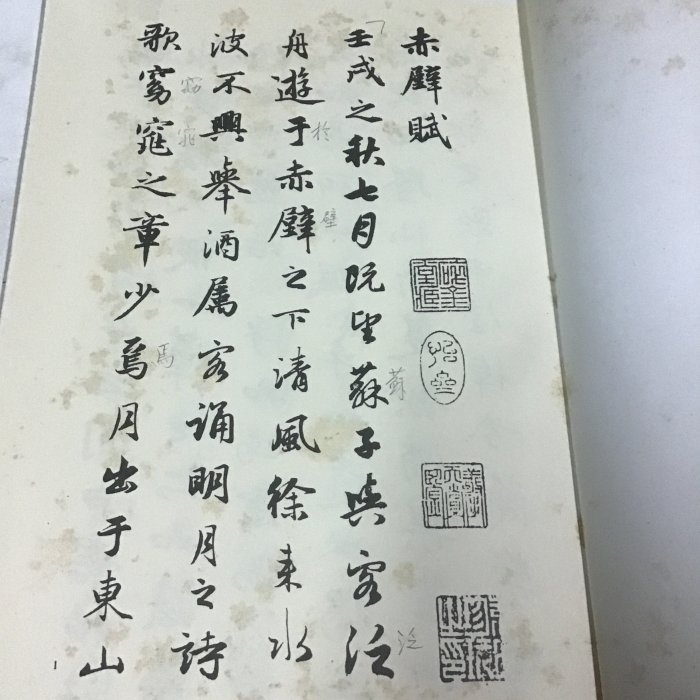 赤壁賦
壬戌之秋七月既望蘇子與客泛
舟遊于赤壁之下清風徐来水
波不興舉酒属客誦明月之詩
歌窈窕之章少焉月出于東山